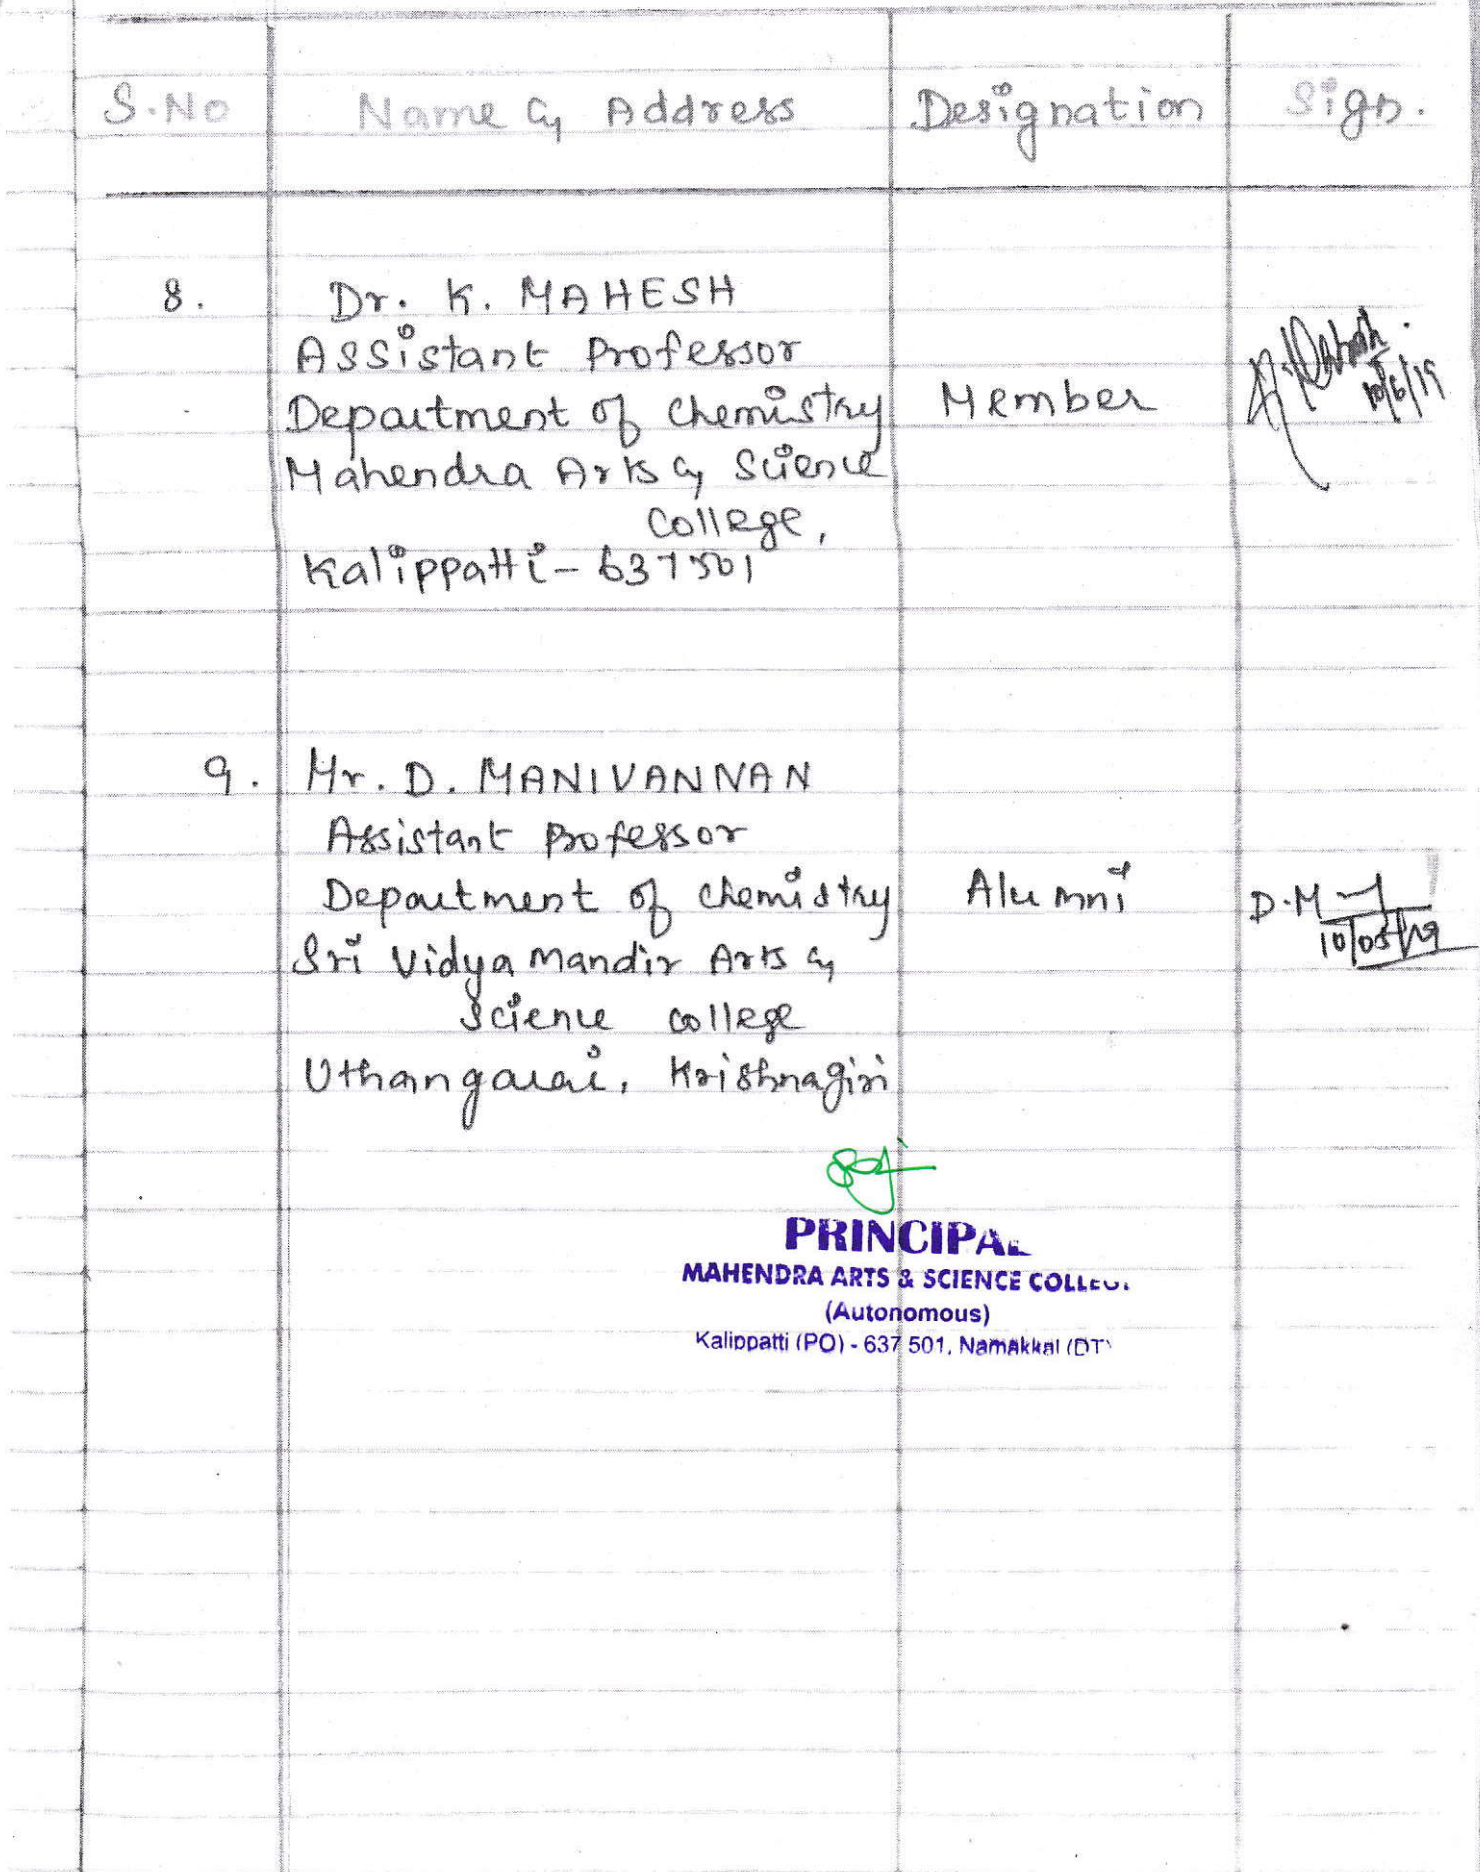 S.No Name & Address Designation Sign.
8. Dr. K. MAHESH
Assistant Professor
Department of Chemistry Member
Mahendra Arts & Science
College,
Kalippatti - 637501
10/6/19
9. Mr. D. MANIVANNAN
Assistant Professor
Department of Chemistry Alumni D.M
Sri Vidya Mandir Arts & 10/05/19
Science College
Uthangarai, Krishnagiri
PRINCIPAL
MAHENDRA ARTS & SCIENCE COLLEGE
(Autonomous)
Kalippatti (PO) - 637 501, Namakkal (DT)